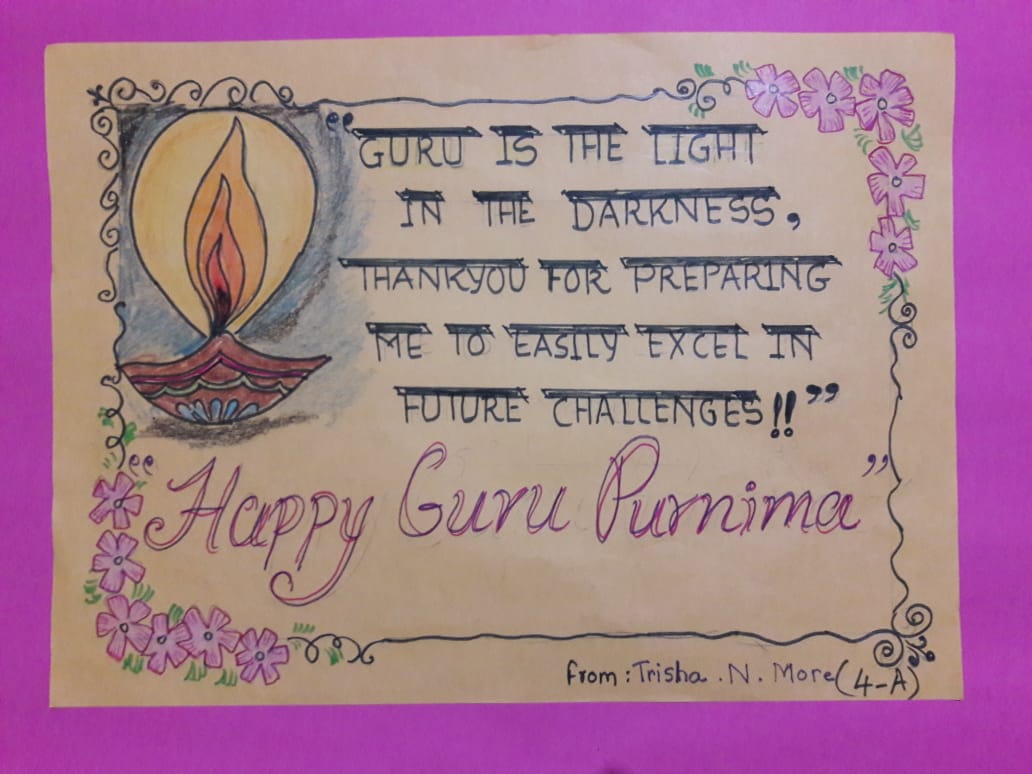 “GURU IS THE LIGHT
IN THE DARKNESS,
THANKYOU FOR PREPARING
ME TO EASILY EXCEL IN
FUTURE CHALLENGES!!”
“Happy Guru Purnima”
from : Trisha . N. More (4-A)